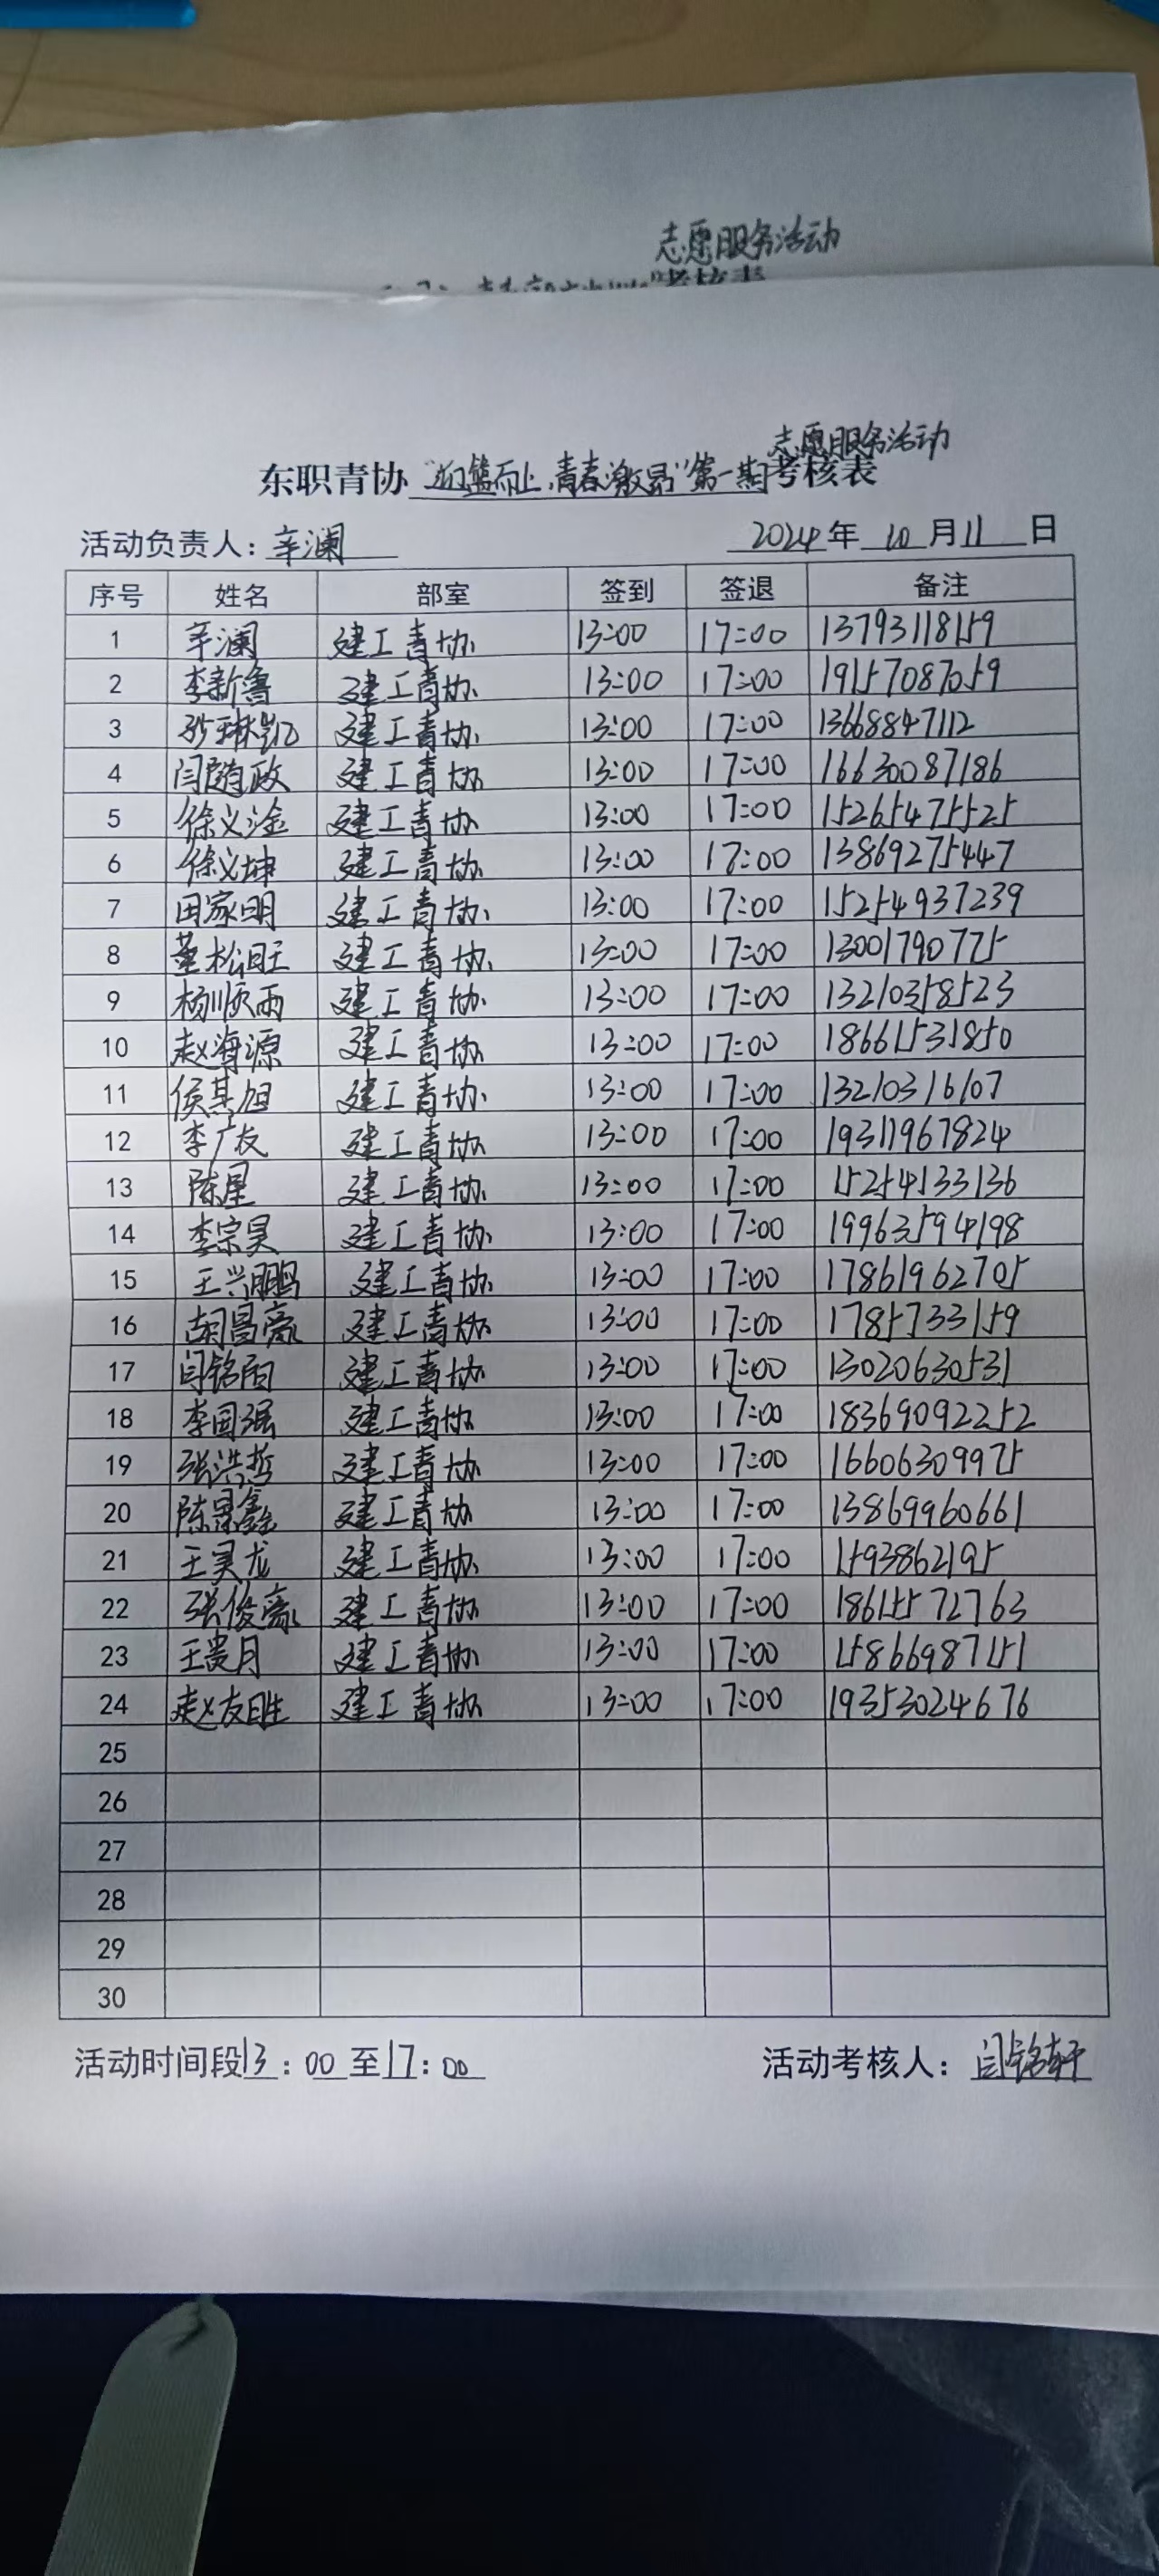 志愿服务活动
志愿服务活动
东职青协"迎篮而上,青春激昂"第一期考核表
活动负责人:辛澜 2024年10月11日
序号 姓名 部室 签到 签退 备注
1 辛澜 建工青协 13:00 17:00 13793118159
2 李新鲁 建工青协 13:00 17:00 19157087059
3 建工青协 13:00 17:00 13668847112
4 闫随政 建工青协 13:00 17:00 16630087186
5 徐义淦 建工青协 13:00 17:00 15265475525
6 徐义坤 建工青协 13:00 17:00 13869275447
7 田家明 建工青协 13:00 17:00 15254937239
8 董松旺 建工青协 13:00 17:00 13001790775
9 杨顺雨 建工青协 13:00 17:00 13210358523
10 赵海源 建工青协 13:00 17:00 18661531850
11 侯其旭 建工青协 13:00 17:00 13210316107
12 李广友 建工青协 13:00 17:00 19311967824
13 陈星 建工青协 13:00 17:00 15254133136
14 李宗昊 建工青协 13:00 17:00 19963594198
15 王兴鹏 建工青协 13:00 17:00 17861962705
16 胡昌豪 建工青协 13:00 17:00 1785733159
17 闫铭雨 建工青协 13:00 17:00 13020630531
18 李国强 建工青协 13:00 17:00 18369092252
19 张洪哲 建工青协 13:00 17:00 16606309975
20 陈景鑫 建工青协 13:00 17:00 13869960661
21 王昊龙 建工青协 13:00 17:00 1593862195
22 张俊豪 建工青协 13:00 17:00 18615572763
23 王贵月 建工青协 13:00 17:00 15866987151
24 赵友胜 建工青协 13:00 17:00 19353024676
25
26
27
28
29
30
活动时间段13:00至17:00 活动考核人:闫铭轩